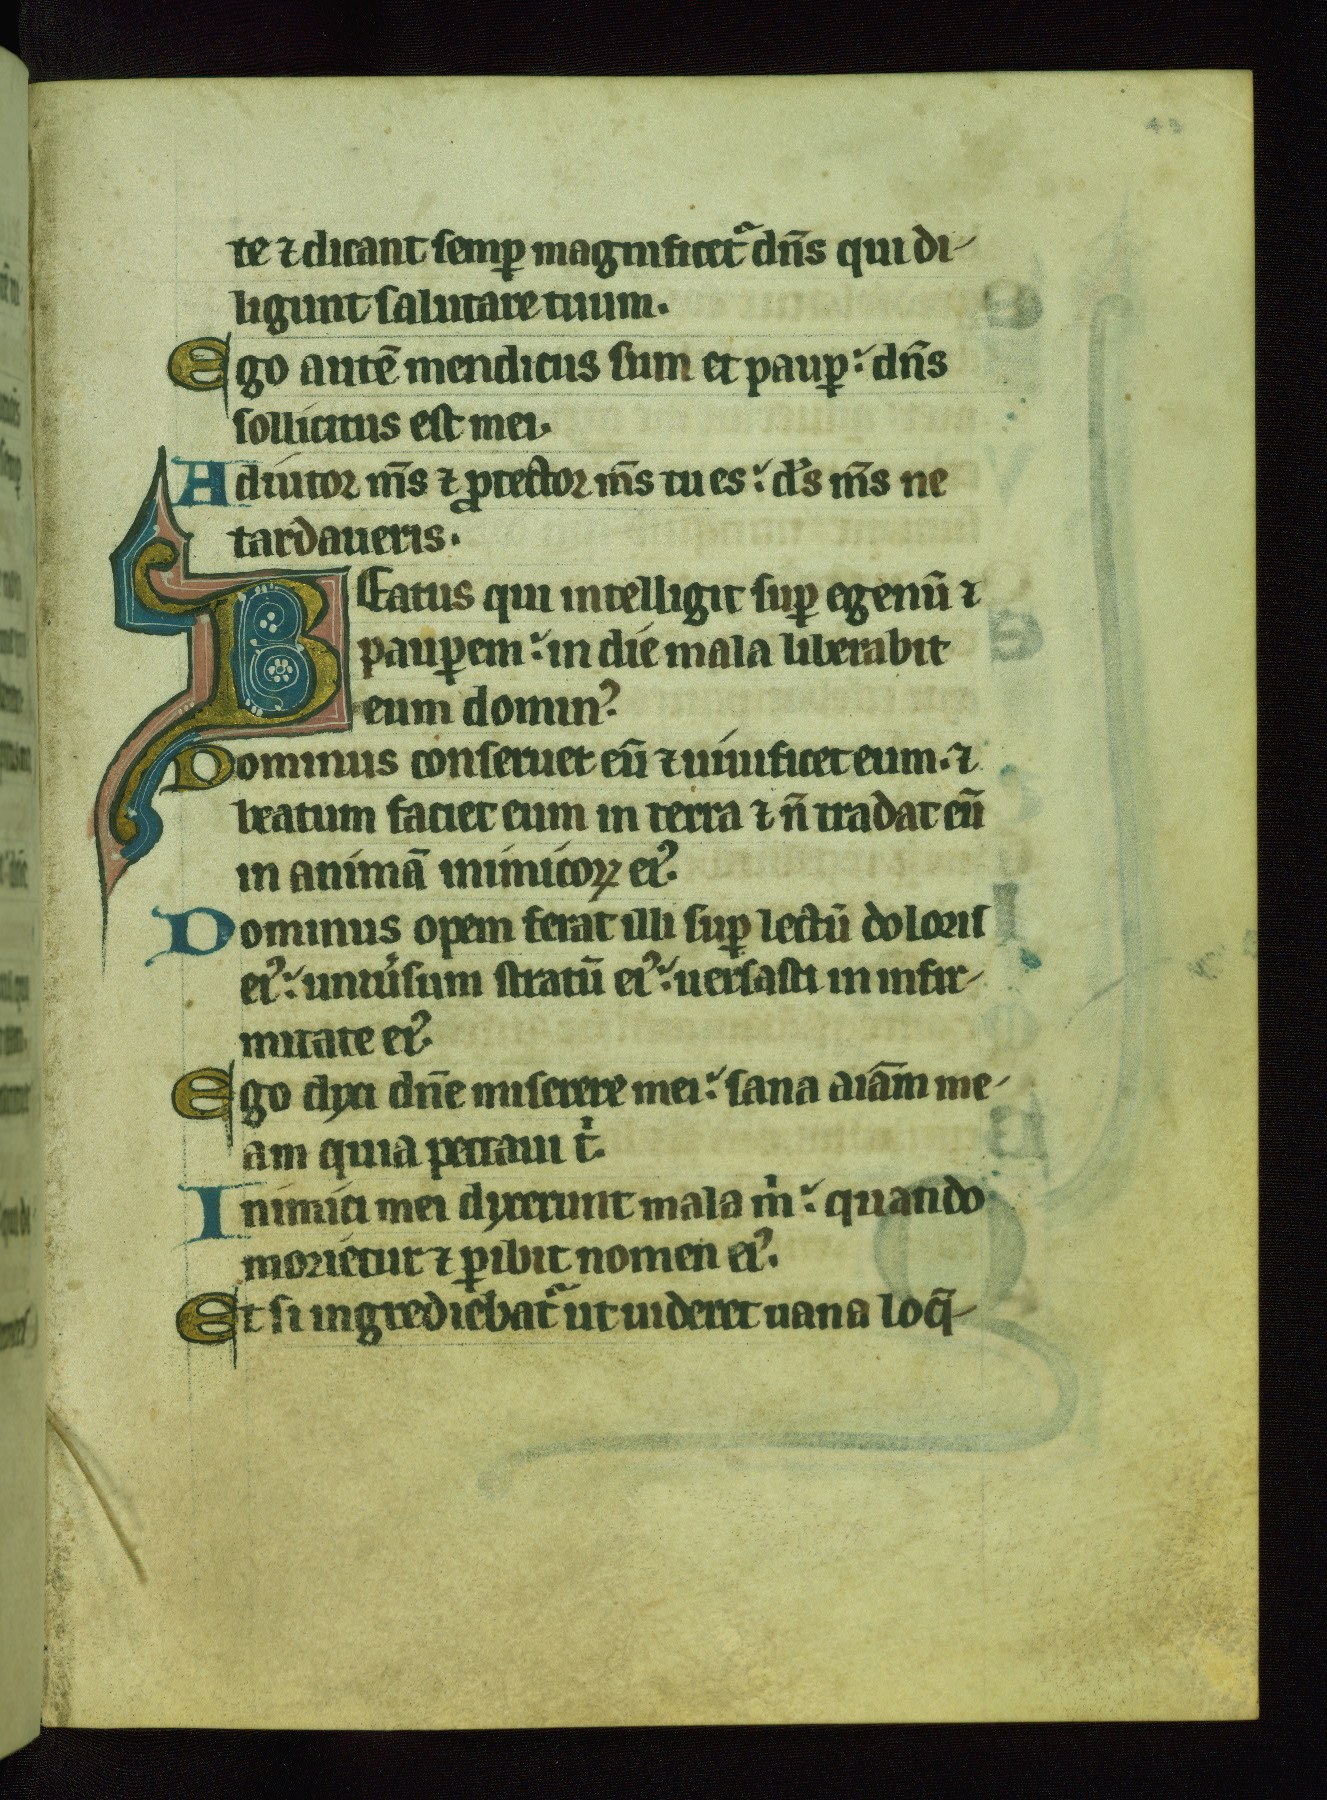 te ⁊ dicant semꝑ magnificet᷑ dn̄s qui di-
ligunt salutare tuum.
Ego autē mendicus sum et pauꝑ: dn̄s
sollicitus est mei.
Adiutor m̄s ⁊ ꝓtector m̄s tu es: d̓s m̄s ne
tardaueris.
BEatus qui intelligit suꝑ egenū ⁊
pauꝑem: in die mala liberabit
eum dominꝰ.
Dominus conseruet eū ⁊ uiuificet eum. ⁊
beatum faciet eum in terra ⁊ n̄ tradat eū
in animā inimicoꝝ eiꝰ.
Dominus opem ferat illi suꝑ lectū doloris
eiꝰ: uniu̓sum stratū eiꝰ: uersasti in infir-
mitate eiꝰ.
Ego dyxi dn̄e miserere mei: sana aīam me-
am quia peccaui t̓.
Inimici mei dyxerunt mala m̓: quando
morietur ⁊ ꝑibit nomen eiꝰ.
Et si ingrediebat᷑ ut uideret uana loq̄-